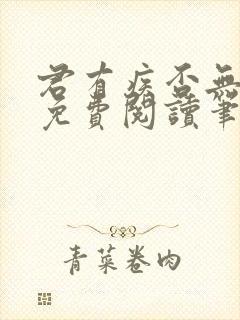 君有疾否無
免費閱讀筆
青菜卷肉